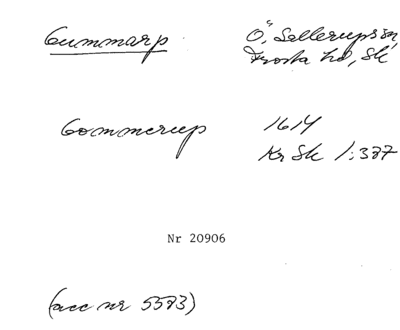 Gummarp
Ö. Sallerups sn,
Frosta hd, Sk
Gommerup
1614
Kr Sk 1:387
Nr 20906
(acc nr 5583)